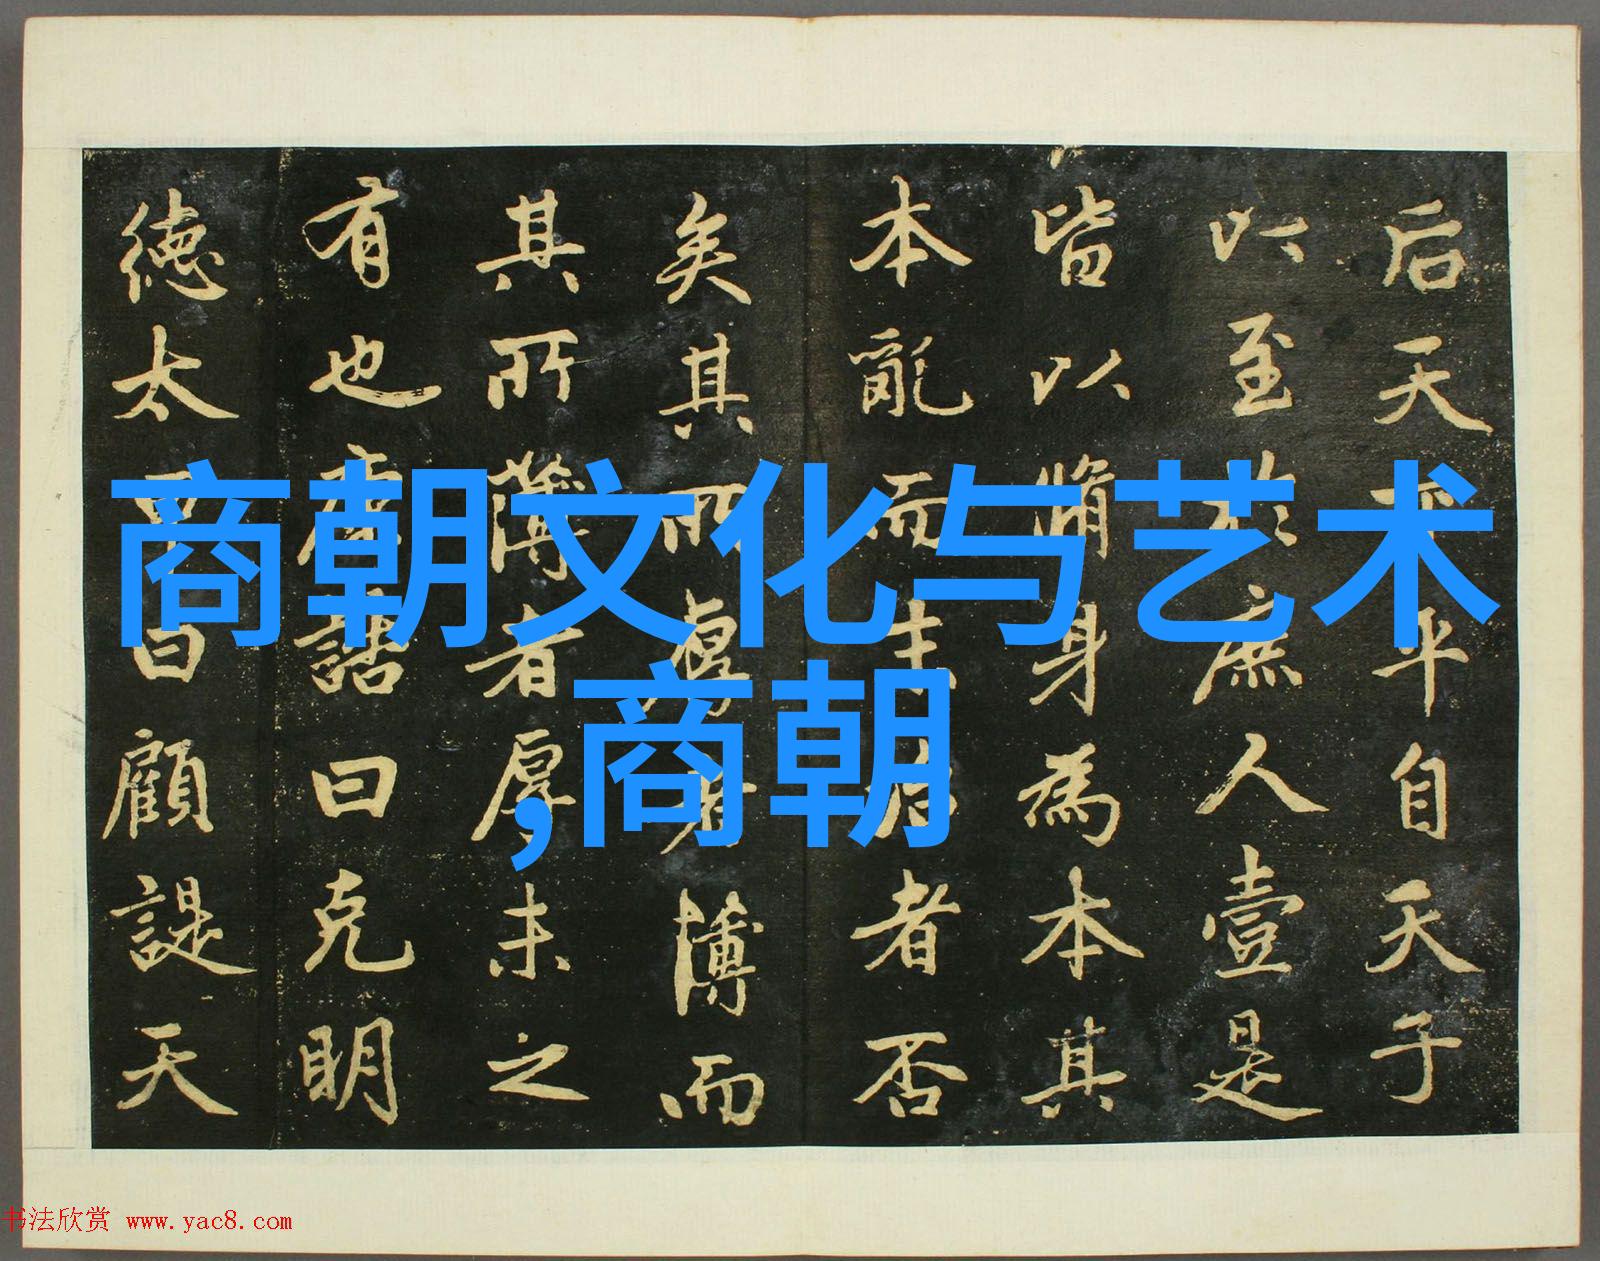 后天下平自天子
以至於庶人壹是
皆以脩身為本其
本亂而末治者否
矣其所厚者薄而
其所薄者厚未之
有也康誥曰克明
德太甲曰顧諟天
商朝文化与艺术
,商朝
书法欣赏 www.yac8.com